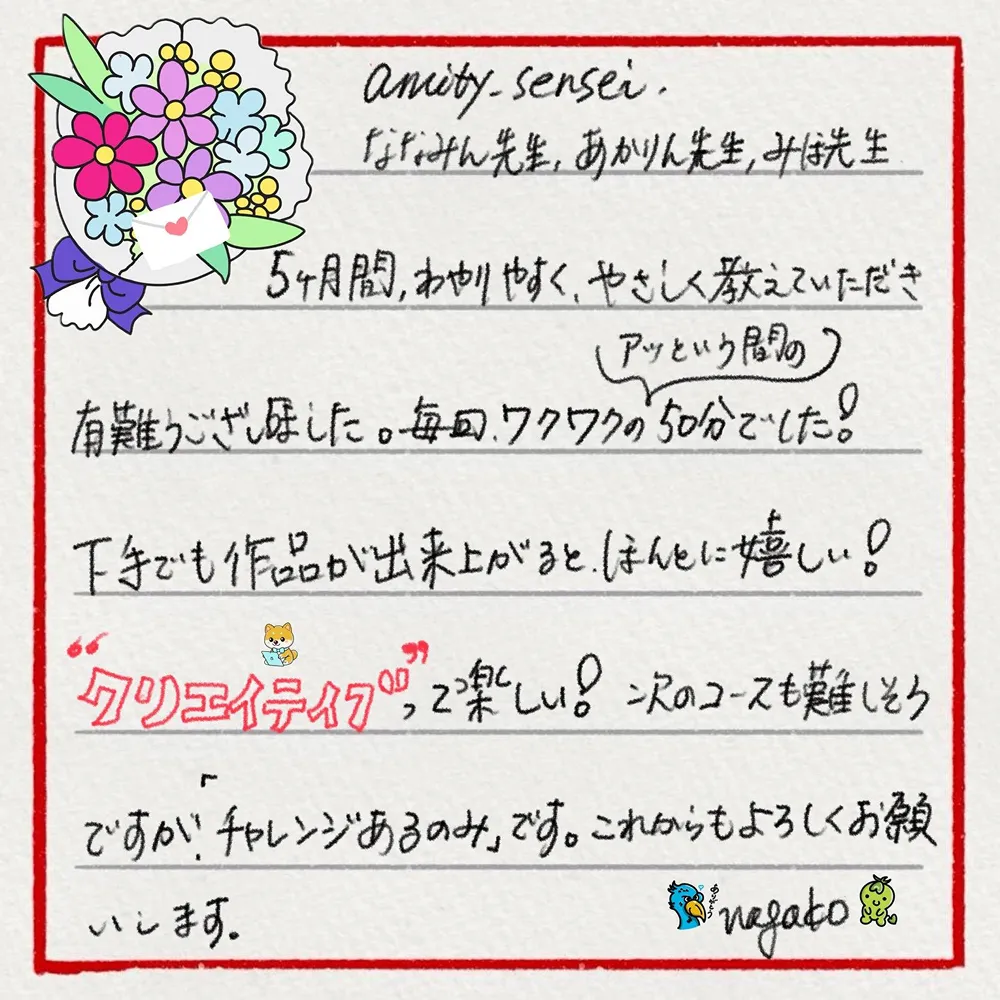 amity-sensei.
ななみん先生, あかりん先生, みほ先生
5ヶ月間, わかりやすく、やさしく教えていただき
アッという間の
有難うございました。毎回、ワクワクの50分でした!
下手でも作品が出来上がると、ほんとに嬉しい!
“クリエイティブ”って楽しい! 次のコースも難しそう
ですが、「チャレンジあるのみ」です。これからもよろしくお願
いします。
ありがとう
nagako